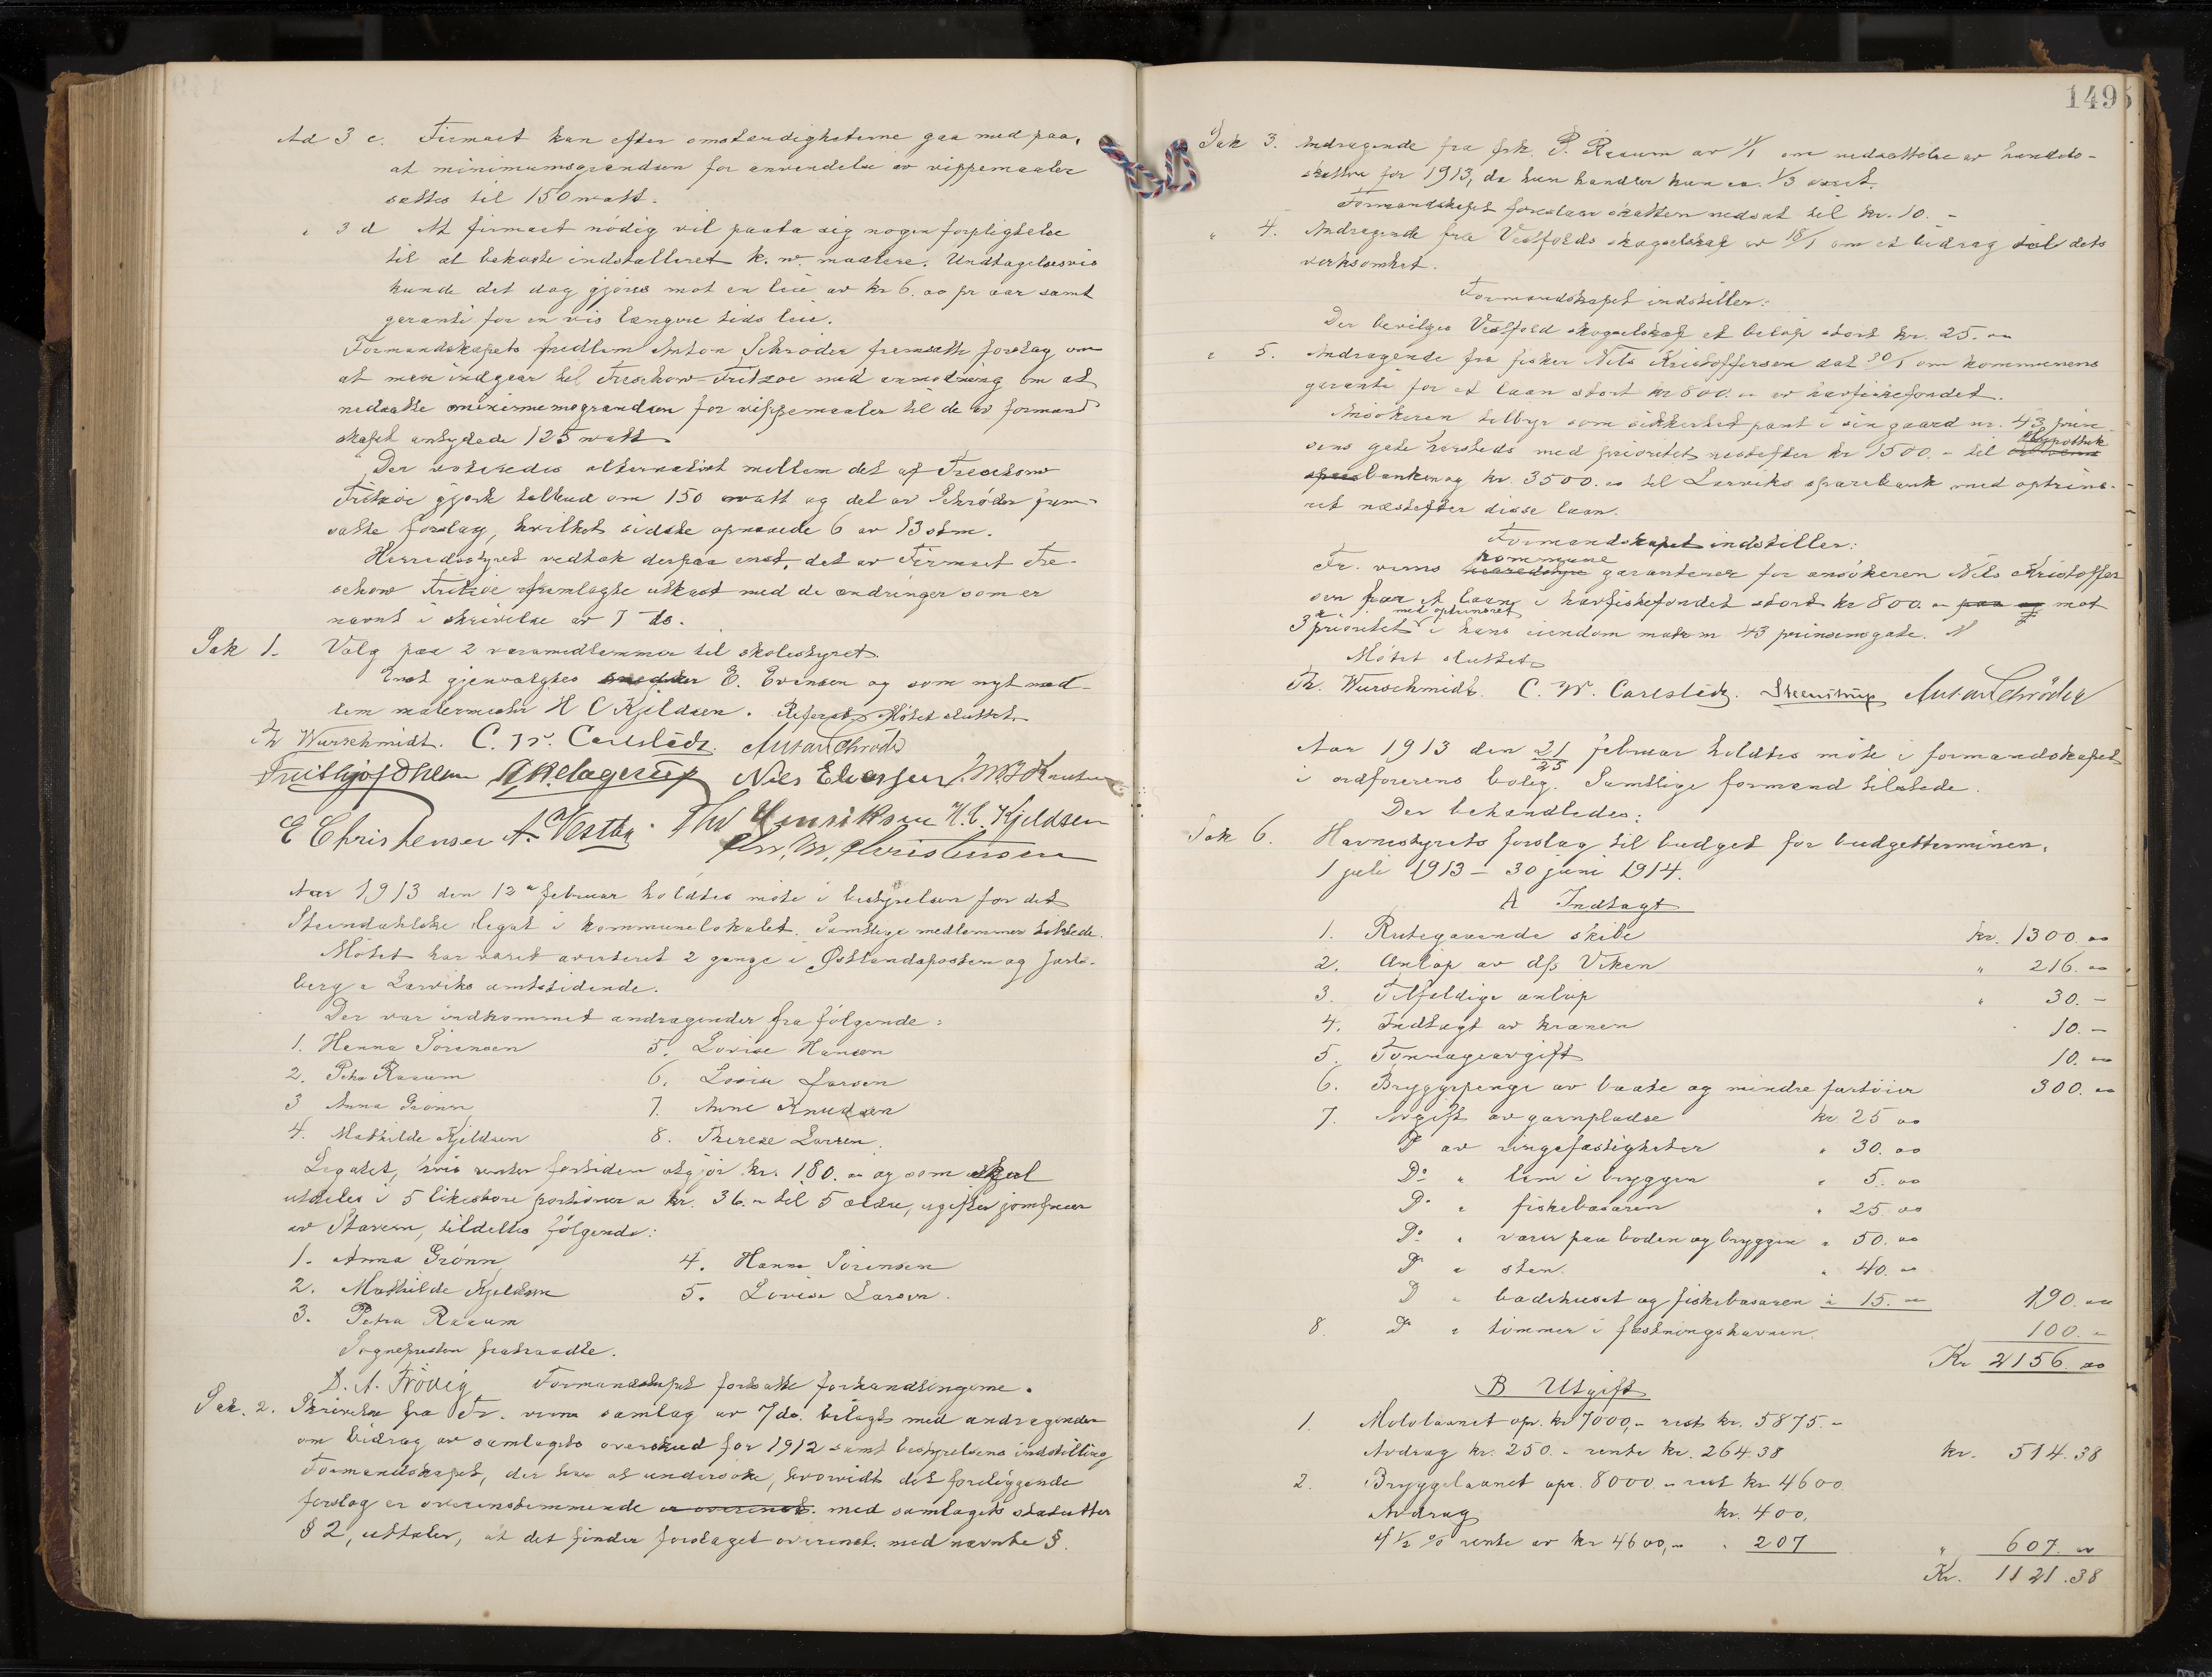 Ad 3 c. Firmaet kan efter omstændigheterne gaa med paa,
at minimumsgrændsen for anvendelse av vippemaaler
sættes til 150 watt.
" 3 d At firmaet nödig vil paata sig nogen forpligtelse
til at bekoste indstalleret k. w. maalere. Undtagelsesvis
kunde det dog gjöres mot en leie av kr 6.00 pr aar samt
garanti for en vis længere tids leie.
Formandskapets medlem Anton Schröder fremsatte forslag om
at man indgaar til Treschow-Fritzöe med anmodning om at
nedsætte minimumsgrændsen for vippemaaler til de av formand
skapet antydede 125 watt.
Der voteredes alternativt mellem det af Treschow
Fritzöe gjorte tilbud om 150 watt og det av Schröder frem
satte forslag, hvilket sidste opnaaede 6 av 13 stm.
Herredsstyret vedtok derpaa enst. det av Firmaet Tre-
schow Fritzöe fremlagte utkast med de ændringer som er
nævnt i skrivelse av 7 ds.
Sak 1. Valg paa 2 varamedlemmer til skolestyret.
Enst gjenvalgtes E. Evensen og som nyt med-
lem malermester H C Kjeldsen. Referat Mötet sluttet.
Th Wurschmidt. C. W. Carlstedt. Anton Schröder
Frithjof Ohlsen A Kelagerup Nils Evensen
E Christensen A. Vestby. Thv Henriksen H. C. Kjeldsen
Chr. M. Christensen
Aar 1913 den 12te februar holdtes möte i bestyrelsen for det
Steendahlske legat i kommunelokalet. Samtlige medlemmer tilstede.
Mötet har været averteret 2 gange i Østlandsposten og Jarls-
berg & Larviks amtstidende.
Der var indkommet andragender fra fölgende:
1. Hanna Sörensen 5. Lovise Hansen
2. Petra Raaum 6. Lovise Larsen
3 Anna Grönn 7. Anne Knudsen
4. Mathilde Kjeldsen 8. Therese Larsen.
Legatet, hvis renter fortiden utgjör kr. 180.00 og som skal
utdeles i 5 likestore portioner a kr. 36.00 til 5 ældre, ugifte jomfruer
av Stavern, tildeltes fölgende:
1. Anna Grönn 4. Hanna Sörensen
2. Mathilde Kjeldsen 5. Lovise Larsen.
3. Petra Raaum
Sognepresten fratraadte.
D. A. Frövig Formandskapet fortsatte forhandlingerne.
Sak. 2. Skrivelse fra Fr. verns samlag av 7 ds. bilagt med andragender
om bidrag av samlagets overskud for 1912 samt bestyrelsens indstilling
Formandskapet, der har at undersöke, hvorvidt det foreliggende
forslag er overensstemmende er overenst. med samlagets statutter
§ 2, uttaler, at det finder forslaget overenst. med nævnte §.
149
Sak 3. Andragende fra frk. P. Raaum av 11/1 om nedsættelse av handels-
skatten for 1913, da hun handler kun ca. 1/3 aaret.
Formandskapet foreslaar skatten nedsat til kr. 10.-
" 4. Andragende fra Vestfolds skogselskap av 18/1 om et bidrag til dets
verksomhet.
Formandskapet indstiller:
Der bevilges Vestfold skogselskap et belöp stort kr. 25.00
" 5. Andragende fra fisker Nils Kristoffersen dat 30/1 om kommunens
garanti for et laan stort kr 800.00 av havfiskefondet.
Ansökeren tilbyr som sikkerhet pant i sin gaard nr. 43 prin-
sens gate hersteds med prioritet næstefter kr 1500.- til hypotek
banken og kr. 3500.00 til Larviks sparebank med optrins-
ret næstefter disse laan.
Formandskapet indstiller:
Fr. verns kommune garanterer for ansökeren Nils Kristoffer
sen for et laan i havfiskefondet stort kr 800.00 paa og mot
3 prioritet med optrinsret i hans eiendom matr nr 43 prinsensgate.
Mötet sluttet.
Th. Wurschmidt. C. W. Carlstedt. Steenstrup Anton Schröder
Aar 1913 den 21/25 februar holdtes möte i formandskapet
i ordförerens bolig. Samtlige formænd tilstede.
Der behandledes:
Sak 6. Havnestyrets forslag til budget for budgetterminen.
1 juli 1913 - 30 juni 1914.
A Indtægt
1. Rutegaaende skibe kr. 1300.00
2. Anlöp av d/s Viken " 216.00
3. Tilfeldige anlöp " 30.-
4. Indtægt av kranen 10.-
5. Tonnageavgift 10.00
6. Bryggepenge av baate og mindre fartöier 300.00
7. Avgift av garnpladse kr. 25 00
Do av ringefæstigheter " 30.00
Do " lem i bryggen " 5.00
Do " fiskebasaren " 25.00
Do " varer paa boden og bryggen " 50.00
Do " sten. " 40.00
Do " badehuset og fiskebasaren " 15.00 190.00
8. Do " tömmer i fæstningshavnen. 100.-
Kr 2156.00
B Utgift
1. Mololaanet opr. kr 7000,- rest kr. 5875.-
Avdrag kr. 250.- rente kr. 264 38 kr. 514.38
2. Bryggelaanet opr. 8000.- rest kr 4600.
Avdrag kr. 400,
4 1/2 % rente av kr 4600,- " 207 " 607.00
Kr. 1121.38